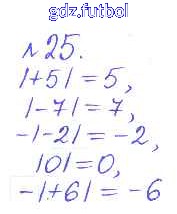 gdz.futbol
№25.
|+5|=5,
|-7|=7,
-|-2|=-2,
|0|=0,
-|+6|=-6